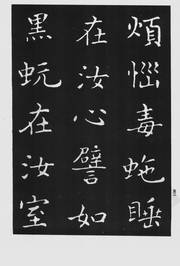 煩惱毒蛇睡
在汝心譬如
黑蚖在汝室